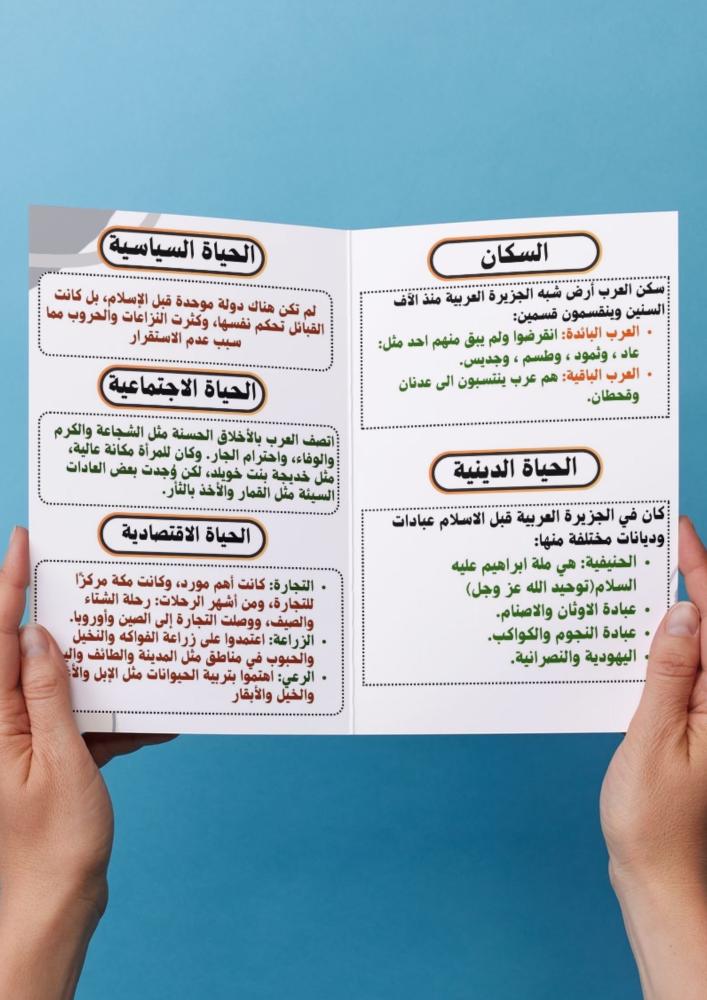 السكان
سكن العرب أرض شبه الجزيرة العربية منذ الآف
السنين وينقسمون قسمين:
• العرب البائدة: انقرضوا ولم يبق منهم احد مثل:
عاد ، وثمود ، وطسم ، وجديس.
• العرب الباقية: هم عرب ينتسبون الى عدنان
وقحطان.
الحياة الدينية
كان في الجزيرة العربية قبل الاسلام عبادات
وديانات مختلفة منها:
• الحنيفية: هي ملة ابراهيم عليه
السلام(توحيد الله عز وجل)
• عبادة الاوثان والاصنام.
• عبادة النجوم والكواكب.
• اليهودية والنصرانية.
الحياة السياسية
لم تكن هناك دولة موحدة قبل الإسلام، بل كانت
القبائل تحكم نفسها، وكثرت النزاعات والحروب مما
سبب عدم الاستقرار
الحياة الاجتماعية
اتصف العرب بالأخلاق الحسنة مثل الشجاعة والكرم
والوفاء، واحترام الجار. وكان للمرأة مكانة عالية،
مثل خديجة بنت خويلد، لكن وُجدت بعض العادات
السيئة مثل القمار والأخذ بالثأر.
الحياة الاقتصادية
• التجارة: كانت أهم مورد، وكانت مكة مركزًا
للتجارة، ومن أشهر الرحلات: رحلة الشتاء
والصيف، ووصلت التجارة إلى الصين وأوروبا.
• الزراعة: اعتمدوا على زراعة الفواكه والنخيل
والحبوب في مناطق مثل المدينة والطائف
• الرعي: اهتموا بتربية الحيوانات مثل الإبل
والخيل والأبقار